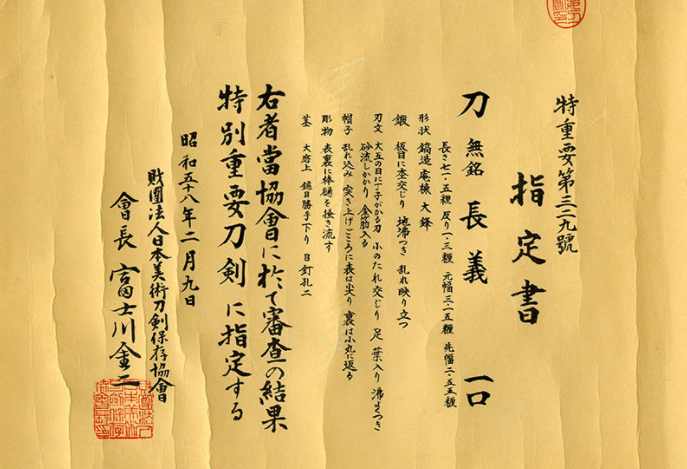 特重要第三二九號
指定書
刀 無銘 長義 一口
長さ七一・五糎 反り一・三糎 元幅三・一五糎 先幅二・五五糎
形状 鎬造 庵棟 大鋒
鍛 板目に杢交じり 地沸つき 乱れ映り立つ
刃文 大互の目に丁子がかる刃 小のたれ交じり 足 葉入り 沸よくつき
砂流しかかり 金筋入る
帽子 乱れ込み 突き上げごころに表は尖り 裏は小丸に返る
彫物 表裏に棒樋を掻き流す
茎 大磨上 鑢目勝手下り 目釘孔二
右者當協會に於て審査の結果
特別重要刀剣に指定する
昭和五十八年二月九日
財團法人日本美術刀劍保存協會
會長 富士川金二